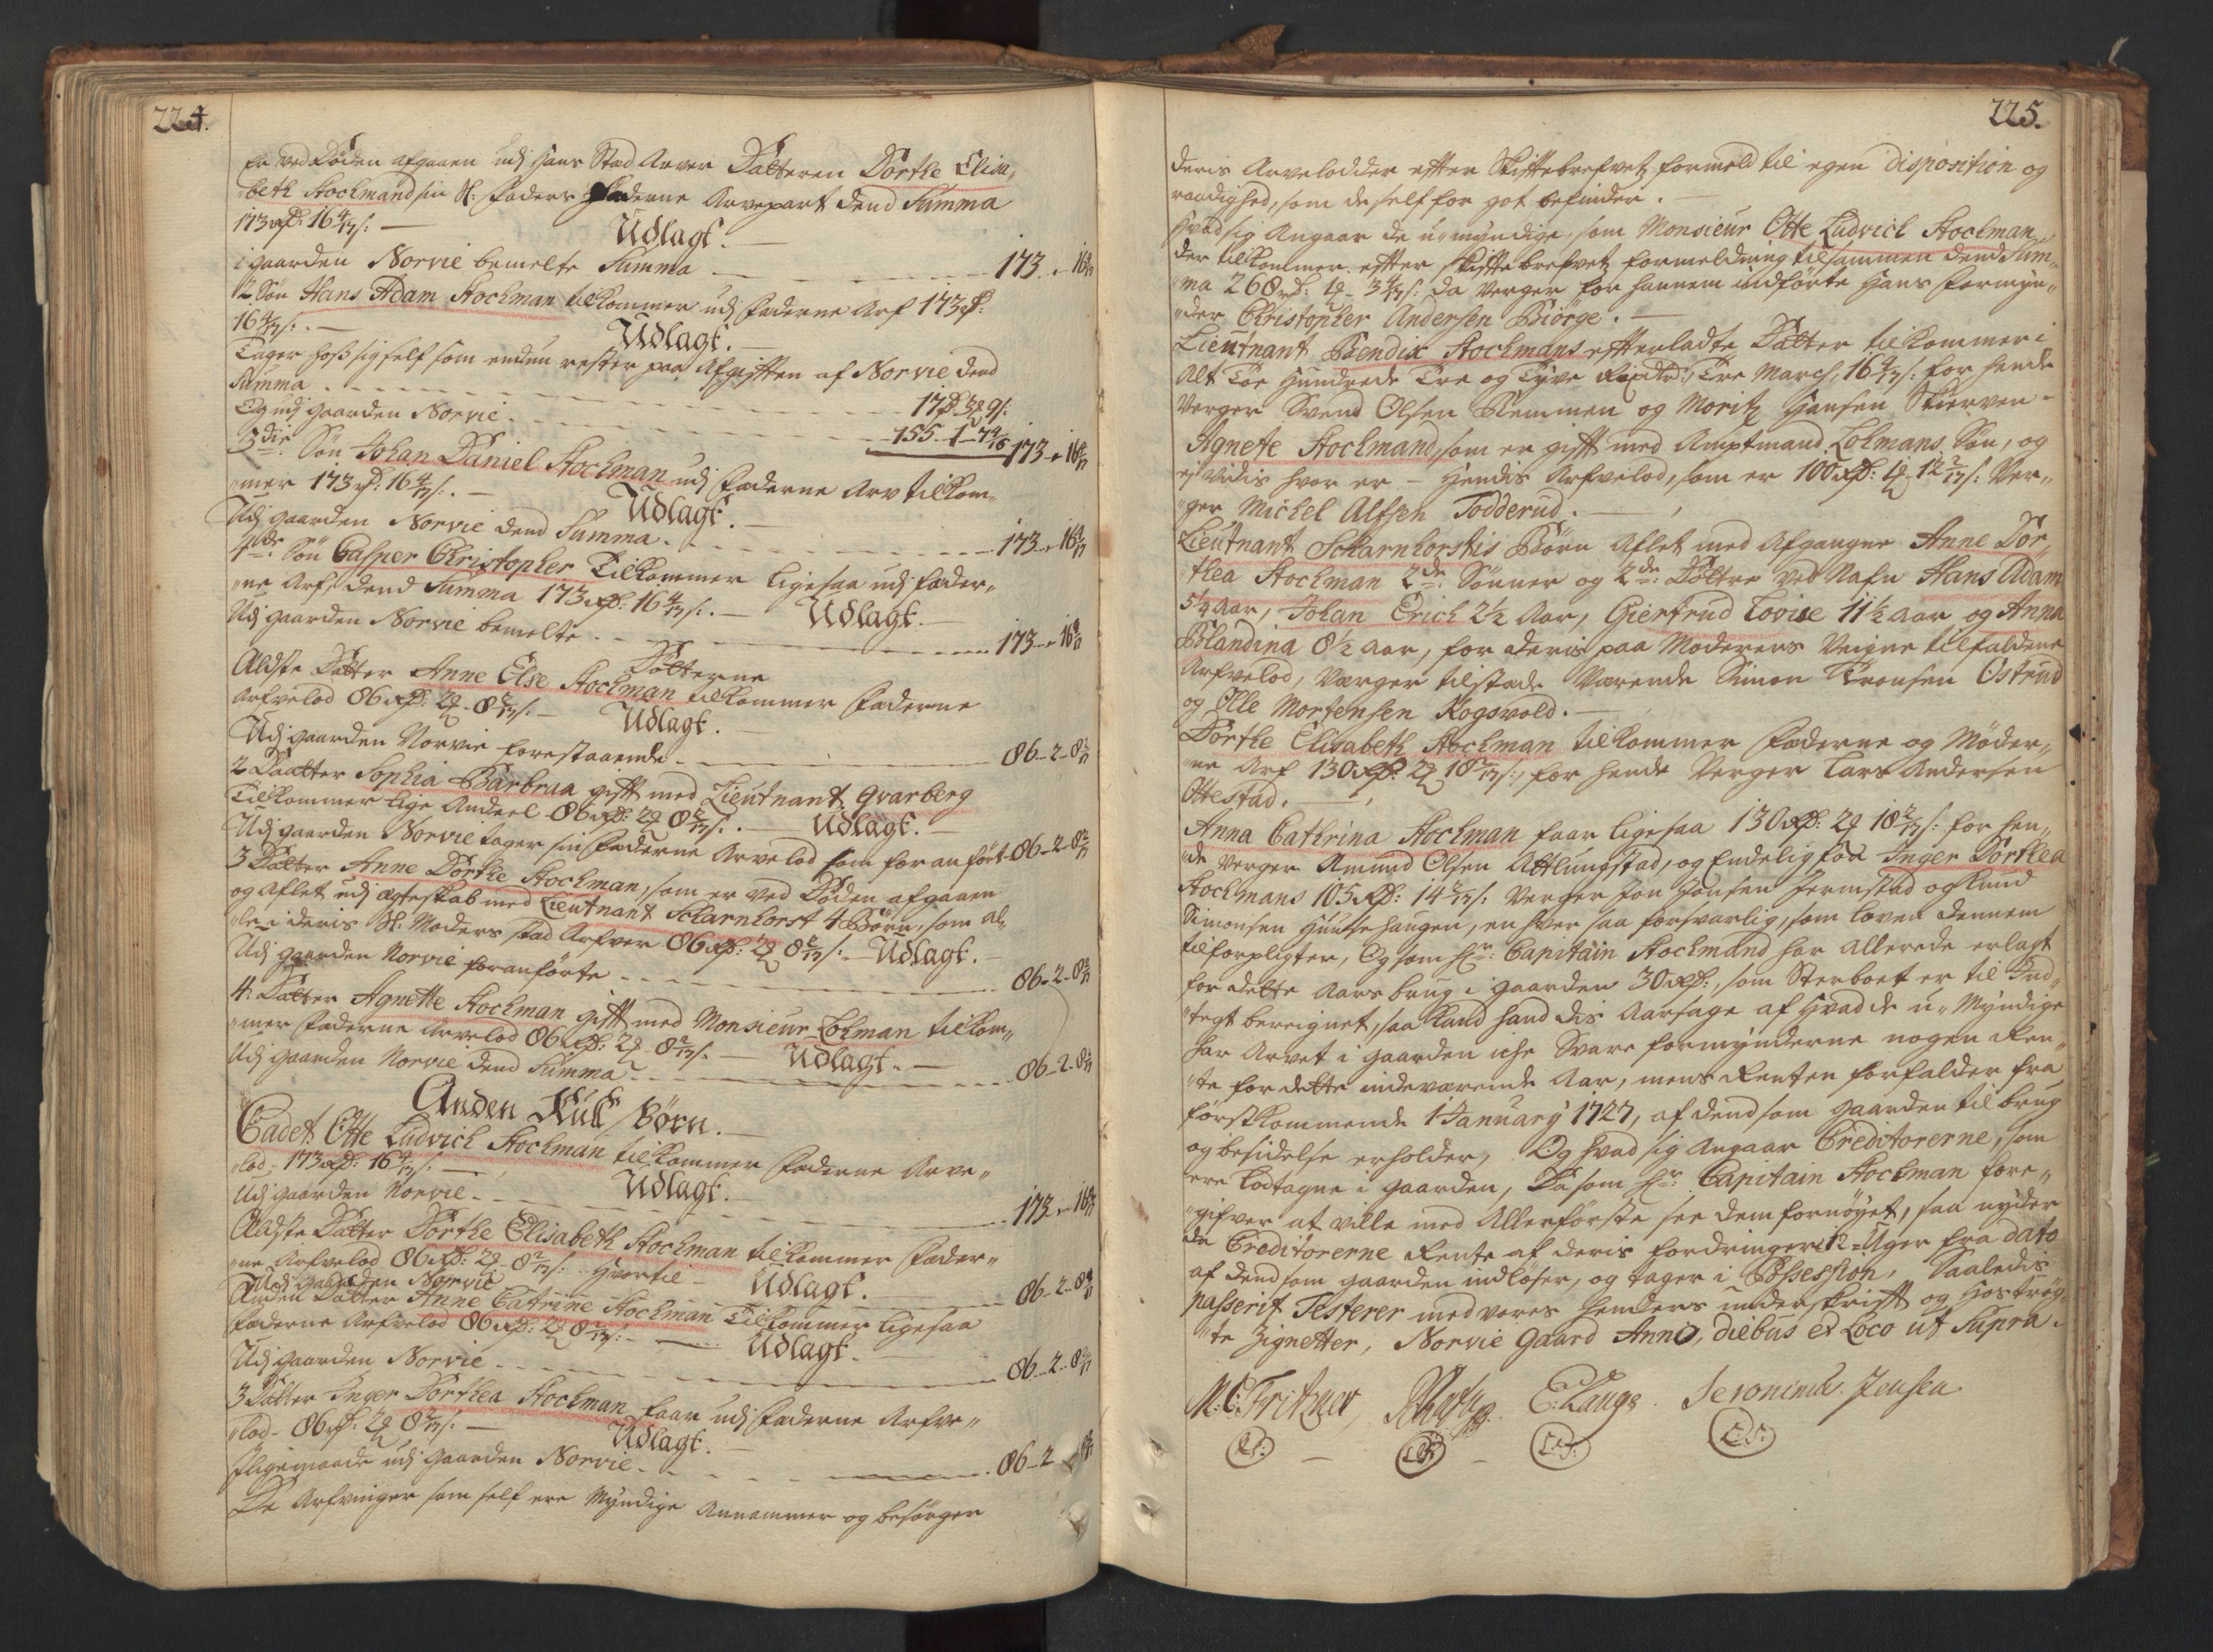 224.
er ved Døden afgaaen udj hans Stad Arver Datteren Dorthe Elisa„
beth Stochmand sin Sl: Faders Fæderne Arvepart dend Summa
173 rd: 16 4/17 s: —
Udlagt. —
i gaarden Norvie bemelte Summa — 173 „ 16 4/17
2 Søn Hans Adam Stochman tilkommer udj Fæderne Arf 173 rd:
16 4/17 s: . —
Udlagt. —
Tager hoss sig self som endnu rester paa Afgifften af Norvie dend
Summa 17 rd 3 9 s:
Og udj gaarden Norvie. 155 - 1 - 7 4/17 173 „ 16 4/17
3die Søn Johan Daniel Stochman udj Fæderne Arv tilkom„
„mer 173 rd: 16 4/17 s: . —
Udlagt. —
Udj gaarden Norvie dend Summa. 173 „ 16 4/17
4de Søn Casper Christopher Tilkommer ligesaa udj Fæder„
„ne Arf, dend Summa 173 rd: 16 4/17 s: . — Udlagt. —
Udj gaarden Norvie bemelte 173 „ 16 4/17
Døtterne
Ældste Datter Anne Else Stochman tilkommer Fæderne
Arfvelod 86 rd: 2 - 8 2/17 s: — Udlagt.
Udj gaarden Norvie forestaaende 86 - 2 - 8 2/17
2 Daatter Sophia Barbraa gifft med Lieutnant Qvarberg
Tilkommer lige Andeel 86 rd: 2 8 2/17 s: . — Udlagt. —
Udj gaarden Norvie tager sin Fæderne Arvelod som foranført 86 - 2 - 8 2/17
3 Datter Anne Dorthe Stochman, som er ved Døden afgaaen
og Aflet udj Ægteskab med Lieutnant Scharnhorst 4 Børn, som al„
„le i deris Sl. Moders stad Arfver 86 rd: 2 8 2/17 s: . — Udlagt. —
Udj gaarden Norvie foranførte 86 - 2 - 8 2/17
4: Datter Agnette Stochman gifft med Monsieur Colman tilkom„
„mer Fæderne Arvelod 86 rd: 2 - 8 2/17 s: — Udlagt. —
Udj gaarden Norvie dend Summa 86 - 2 - 8 2/17
Anden Kuld Børn. —
Cadet Otte Ludvich Stochman tilkommer Fæderne Arve„
„lod; 173 rd: 16 4/17 s: —
Udlagt. —
Udj gaarden Norvie. 173 „ 16 4/17
Ældste Datter Dorthe Elisabeth Stochman tilkommer Fæder„
„ne Arfvelod 86 rd: 2 - 8 2/17 s: . Hvortil — Udlagt. —
Udj gaarden Norvie 86 - 2 - 8 2/17
Anden Datter Anne Catrine Stochman Tilkommer ligesaa
Fæderne Arfvelod 86 rd: 2 8 2/17 s: — Udlagt. —
Udj gaarden Norvie 86 - 2 - 8 2/17
3 Datter Inger Dorthea Stochman faar udj Fæderne Arfve„
„lod - 86 rd: 2 8 2/17 s: —
Udlagt. —
Iligemaade udj gaarden Norvie. 86 - 2 - 8 2/17
De Arfvinger som self ere Myndige Annammer og besørger
225.
deris Arvelodder efter Skiftebrefvetz formeld til egen disposition og
raadighed, som de self for got befinder. —
Hvad sig Angaar de u„myndige, som Monsieur Otte Ludvich Stochman,
der tilkommer efter skiftebrefvetz formelding tilsammen dend Sum„
„ma 268 rd: 1 - 3 4/17 s: da Verger for hannem indførte hans formyn„
„der Christopher Andersen Biørge. —
Lieutnant Bendix Stochmans efterladte Datter tilkommer i
Alt Toe Hundrede Tre og Tyve Rixdlr: Tre March, 16 4/17 s: for hende
Verger Svend Olsen Klemmen og Moritz Hansen Skierven -
Agnete Stochmand, som er gifft med Amptmand Colmans Søn, og
ej vidis hvor er — Hendis Arfvelod, som er 100 rd: 1 - 12 2/17 s: Ver„
„ger Michel Alfsen Todderud. —
Lieutnant Scharnhorstis Børn Aflet med Afgangne Anne Dor„
thea Stochman 2de: Sønner og 2de: Døttre ved Nafn Hans Adam
5 1/4 Aar, Johan Erich 2 1/2 Aar, Giertrud Lovise 11 1/2 aar og Anna
Blandina 8 1/2 Aar, for deris paa Moderens Veigne tilfaldene
Arfvelod, Værger tilstæde Værende Simon Tronsen Østrud
og Olle Mortensen Kogsvold. —
Dorthe Elisabeth Stochman tilkommer Fæderne og Møder„
„ne Arf 130 rd: 2 18 2/17 s:, for hende Verger Lars Andersen
Ottestad. —
Anna Cathrina Stochman faar ligesaa 130 rd: 2 18 2/17 s: for hen„
„de verger Amund Olsen Attlungstad, og Endelig for Inger Dorthea
Stochmans 105 rd: 14 2/17 s: Verger Jon Jensen Jermstad og Knud
Simonsen Huusehaugen, en hver saa forsvarlig, som loven dennem
tilforpligter, Og som Hr: Capitain Stochmand har allerede erlagt
for dette Aars brug i gaarden 30 rd:, som Sterboet er til Ind„
„tegt bereignet, saa kand hand dis Aarsage af hvad de u„Myndige
har Arvet i gaarden iche svare formynderne nogen Ren„
„te for dette indeværende Aar, mens Renten forfalder fra
førstkommende 1 January 1727, af dend som gaarden til brug
og besidelse erholder, Og hvad sig Angaar Creditorerne, som
ere lodtagne i gaarden, Da som Hr: Capitain Stochman fore„
„gifver at ville med Allerførste see dem fornøyet, saa nyder
da Creditorerne Rente af deris fordringer 12 Uger fra dato
af dend som gaarden indløser, og tager i Possession, Saaledis
passerit Testerer med vores henders underskrifft og hostrøg„
„te Zignetter, Norvie Gaard Anno, diebus et Loco ut Supra.
M: C: Fritzner E: Lange. Jeronimus Jensen
L.S. — L.S. — L.S. L.S.